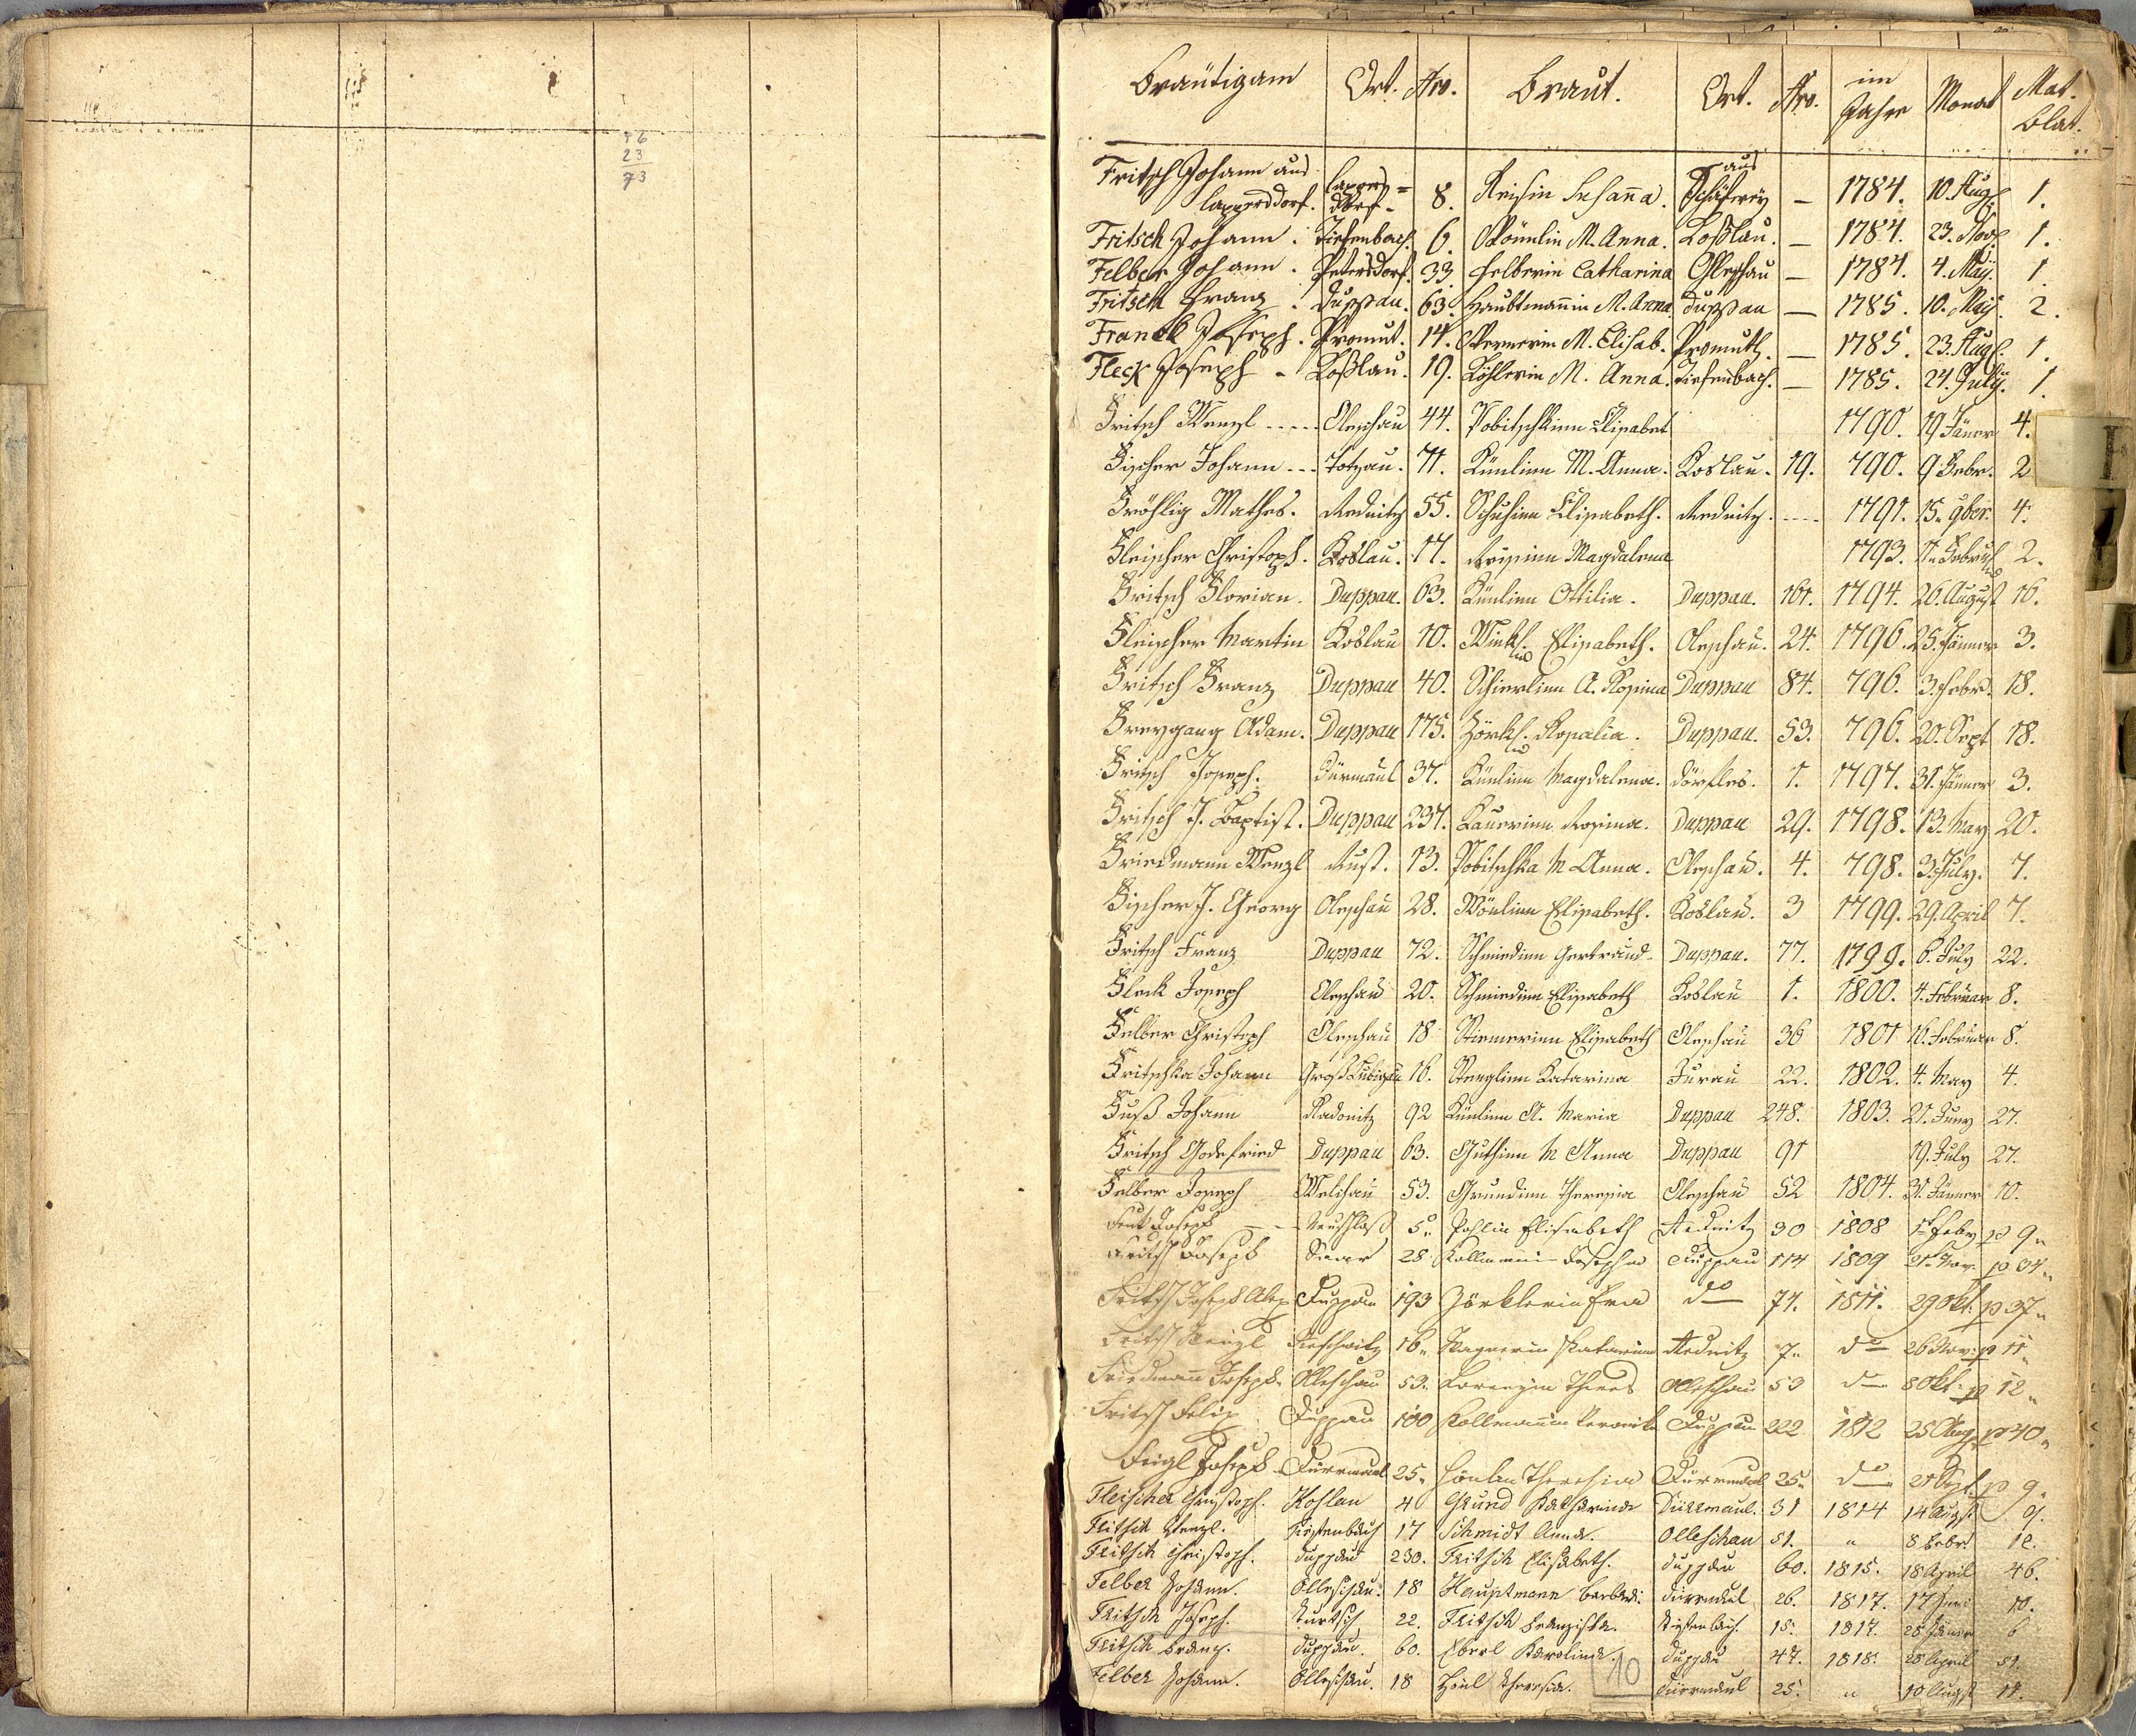 76
23
73
Bräutigam Ort. Nro. Braut. Ort. Nro. im Jahre Monat Mat. Blat.
Fritsch Johann aus Lappersdorf. Lappersdorf. 8. Reisin Susanna. aus Schäferey — 1784. 10. Aug. 1.
Fritsch Johann. Tiefenbach. 6. M. Anna. Koßlau. — 1784. 23. Nov. 1.
Felber Johann. Petersdorf. 33. Felberin Catharina Olleschau — 1784. 4. Maÿ. 1
Fritsch Franz. Duppau. 63. Haubtmannin M. Anna. Duppau — 1785. 10. Maÿ. 2.
Franck Joseph. Promut. 14. M. Elisab. Promuth. — 1785. 23. Aug. 1.
Fleck Joseph. Koßlau. 19. Köhlerin M. Anna. Tiefenbach. — 1785. 24. July. 1.
Fritsch Wenzl Oleschau 44. Pobitschkinn Elisabet 1790. 19 Jäner 4.
Fischer Johann Totzau. 71. Künlinn M. Anna. Koslau. 19. 790. 9 Febr. 2
Fröhlig Mathes. Rednitz 55. Schuhinn Elisabeth. Rednitz. 1791. 15. 9ber. 4.
Fleischer Christoph. Koslau. 17. Reisinn Magdalena 1793. 2.
Fritsch Florian. Duppau. 63. Künlinn Ottilia. Duppau. 161. 1794. 26. August 16.
Fleischer Martin Koslau 10. Elisabeth. Oleschau. 24. 1796. 25. Jänner 3.
Fritsch Franz Duppau 40. Schierlinn A. Rosina Duppau 84. 796. 3. Febr. 18.
Freygang Adam. Duppau 175. Rosalia. Duppau. 53. 796. 20. Sept 18.
Fritsch Joseph. Dürmaul 37. Künlinn Magdalena. Dörfles. 1. 1797. 31. Jänner 3.
Fritsch J. Baptist. Duppau 237. Bauerinn Rosina. Duppau 29. 1798. 13. May 20.
Friedmann Wenzl Rust. 13. Pobitschka M Anna. Oleschau. 4. 798. 3. July. 7.
Fischer J. Georg Oleschau 28. Elisabeth. Koslau. 3 1799. 29. April 7.
Fritsch Franz Duppau 72. Schmiedinn Gertraud. Duppau. 77. 1799. 6. July 22.
Fleck Joseph Oleschau 20. Schmiedinn Elisabeth Koslau 1. 1800. 4. Februar 8.
Felber Christoph Oleschau 18 Elisabeth Oleschau 36 1801 16. Februar 8.
Fritschka Johann Groß Lubigau 16. Stenglinn Katarina Jurau 22. 1802. 4. May 4.
Fuß Johann Radonitz 92 Künlinn A. Maria Duppau 248. 1803. 21. Juny 27.
Fritsch Godefried Duppau 63. Guthinn M Anna Duppau 91 19. July 27.
Felber Joseph Welchau 53. Grundinn Theresia Oleschau 52 1804. 31. Jänner 10.
Joseph Neuschloß 5. Pohlin Elisabeth Rednitz 30 1808 Feby p 9.
Fritsch Joseph Saar 28 Kollmannin Josepha Duppau 114 1809 21 Nov. p 34.
Fritsch Joseph Alex Duppau 193 Zörklerin Eva do 77. 1811. 29 Okt. p 37.
Fritsch Wenzl 16. Wagnerin Katarina Rednitz 7. do 26 Nov. p 11
Friedmann Joseph. Olleschau 53. Lorenzin Theres Olleschau 53 do 8 Okt. p 12.
Fritsch Felix Duppau 100 Kollmannin Veronika Duppau 222 1812 25 Aug p 40.
Feigl Joseph Dürrmaul 25. Theresia Dürrmaul 25. do 21 Sept. p 9.
Fleischer Christoph. Koslau 4 Grund Katharina Dürrmaul. 31 1814 14 Augst 9.
Fritsch Wenzl. Tiefenbach 17 Schmidt Anna. Olleschau 51. " 8 Febr. 12.
Fritsch Christoph. Duppau 230. Fritsch Elisabeth. Duppau 60. 1815. 18 April 46.
Felber Johann. Olleschau. 18 Hauptmann Barbara. Dürrmaul 26. 1817. 17 Juni 10.
Fritsch Joseph. 22. Fritsch Franziska. Tiefenbach. 15. 1817. 28 Jäner 6
Fritsch Franz. Duppau. 60. Eberl Karolina. Duppau 47. 1818. 28 April 51.
Felber Johann. Olleschau. 18 Theresia. Dürrmaul 25. " 10 Augst 11.
10